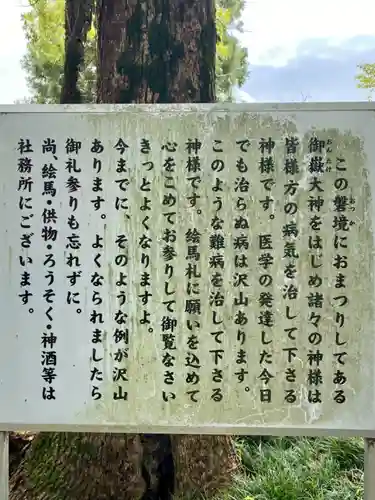 この磐境におまつりしてある
おつか
御嶽大神をはじめ諸々の神様は
おんたけ
皆様方の病気を治して下さる
神様です。医学の発達した今日
でも治らぬ病は沢山あります。
このような難病を治して下さる
神様です。絵馬札に願いを込めて
心をこめてお参りして御覧なさい
きっとよくなりますよ。
今までに、そのような例が沢山
あります。よくなられましたら
御礼参りも忘れずに。
尚、絵馬・供物・ろうそく・神酒等は
社務所にございます。